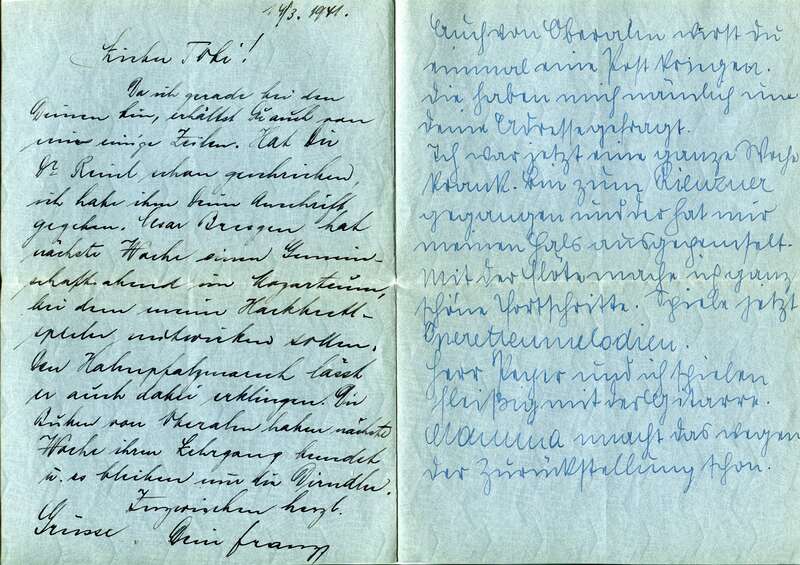 14/3. 1941.
Lieber Tobi!
Da ich gerade bei den
Deinen bin, erhältst Du auch von
mir einige Zeilen. Hat Dir
Dr. Reinl schon geschrieben,
ich habe ihm Deine Anschrift
gegeben. Cesar Bresgen hat
nächste Woche einen Gemein-
schaftsabend im Mozarteum,
bei dem meine Hackbrett-
spieler mitwirken sollen.
Den Hahnpfalzmarsch lässt
er auch dabei erklingen. Die
Buben von Oberalm haben nächste
Woche ihren Lehrgang beendet
u. es bleiben nur die Dirndln.
Inzwischen herzl.
Grüsse Dein Franz
Auch von Oberalm wirst du
einmal eine Post kriegen.
Die haben mich nämlich um
deine Adresse gefragt.
Ich war jetzt eine ganze Woche
krank. Bin zum
gegangen und der hat mir
meinen Hals ausgepemselt.
Mit der Flöte mache ich ganz
schöne Fortschritte. Spiele jetzt
Operettenmelodien.
Herr Peyer und ich spielen
fleißig mit der Gitarre.
Mamma macht das wegen
der Zurückstellung schon.